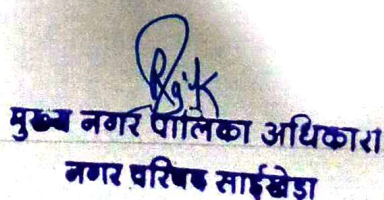 मुख्य नगर पालिका अधिकारी
नगर परिषद साईखेडा